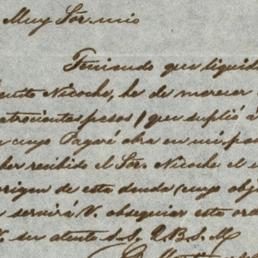 Muy Sor. mio
Teniendo que liquid
Nicoche, ha de merecer
trocientos pesos (que suplió á
cuyo Pagaré obra en mi po
ber recibido el Sor. Nicoche el
origen de esta deuda (cuyo obj
servirá V. obsequiar esta or
su atento S. S. Q. B. S. M.